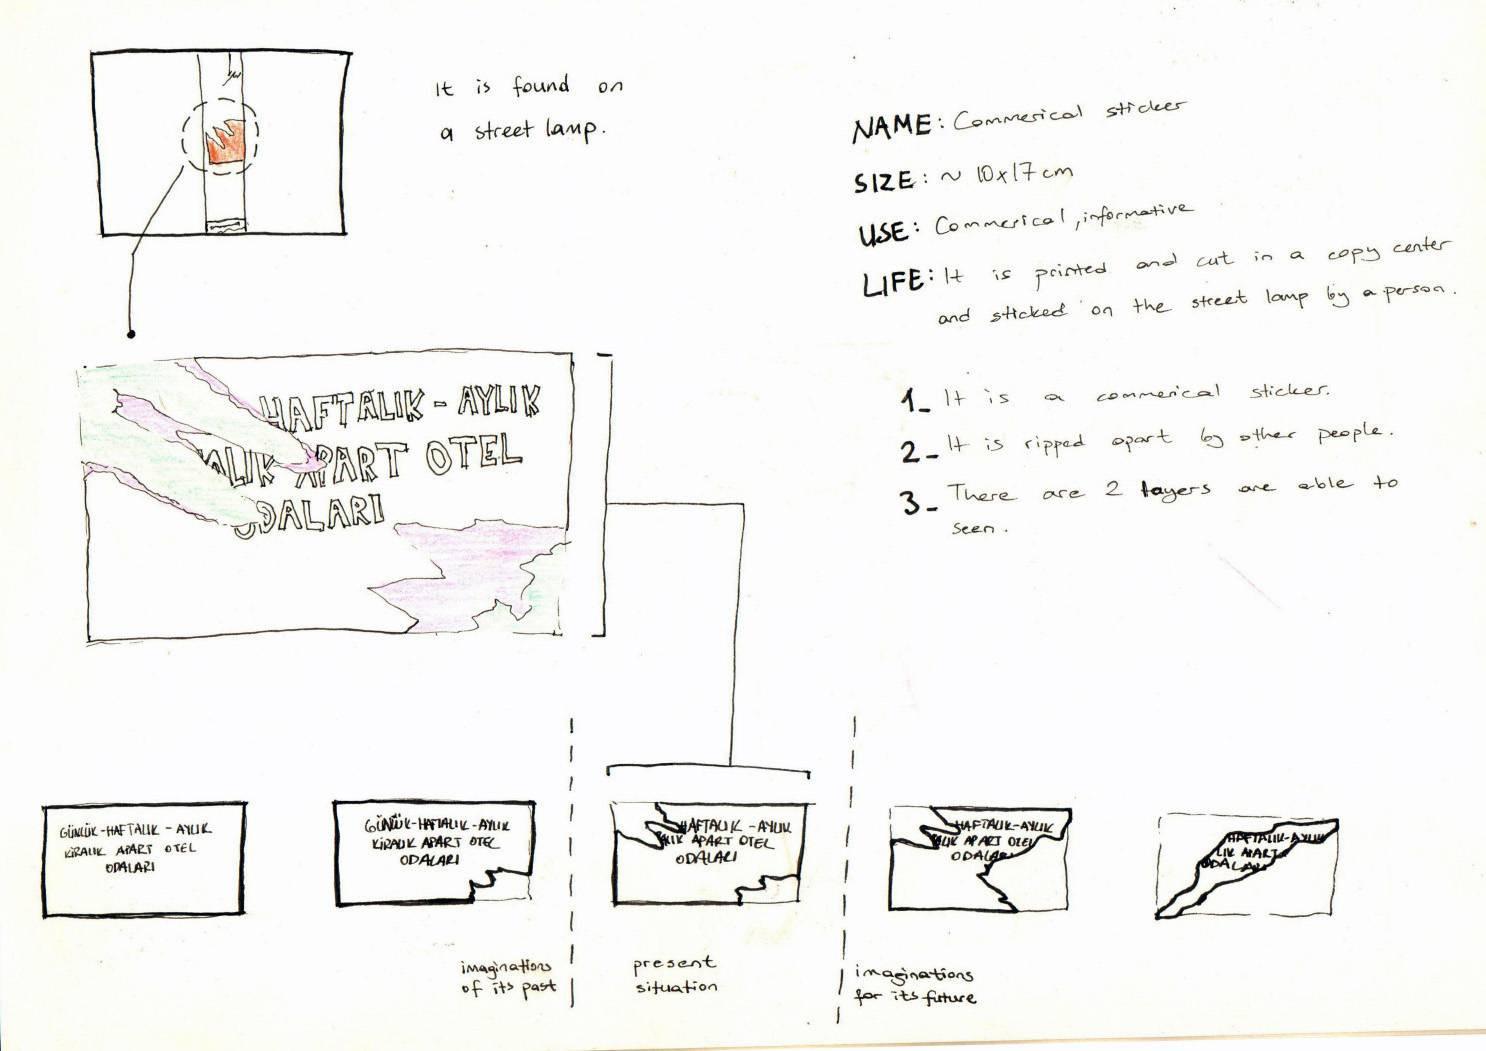 It is found on
a street lamp.
NAME: Commerical sticker
SIZE: ~ 10x17cm
USE: Commerical, informative
LIFE: It is printed and cut in a copy center
and sticked on the street lamp by a person.
1_ It is a commerical sticker.
2_ It is ripped apart by other people.
3_ There are 2 layers are able to
seen.
HAFTALIK - AYLIK
ALIK APART OTEL
ODALARI
GÜNLÜK-HAFTALIK - AYLIK
KİRALIK APART OTEL
ODALARI
GÜNLÜK-HAFTALIK-AYLIK
KİRALIK APART OTEL
ODALARI
HAFTALIK - AYLIK
ALIK APART OTEL
ODALARI
HAFTALIK-AYLIK
ALIK APART OTEL
ODALARI
HAFTALIK-AYLIK
LIK APART
ODALARI
imaginations
of its past
present
situation
imaginations
for its future